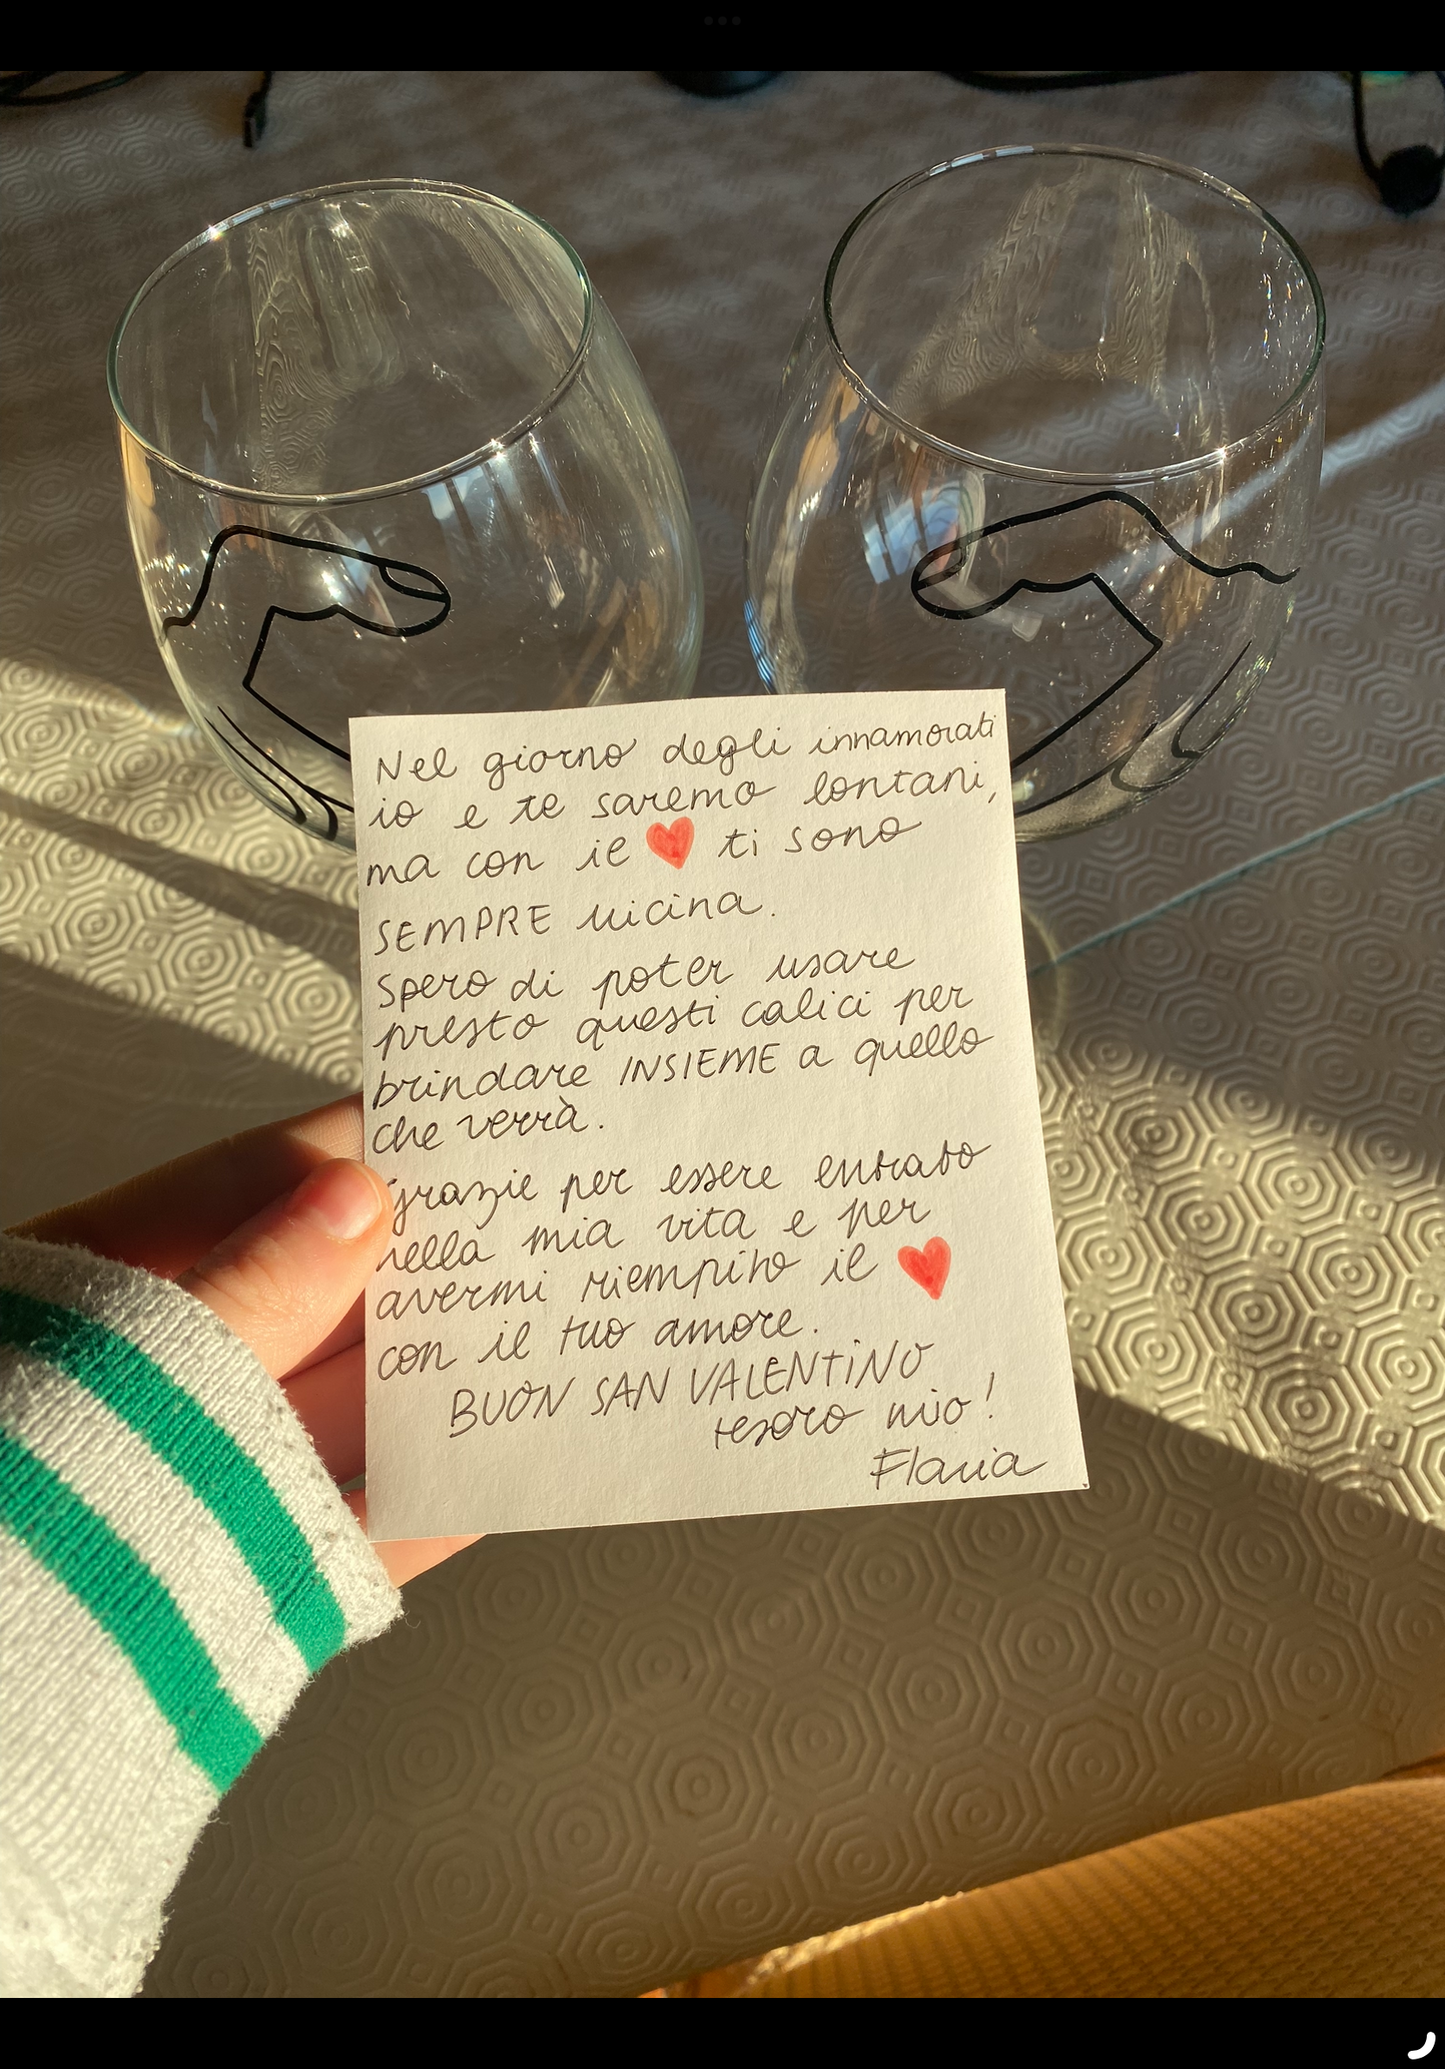 Nel giorno degli innamorati
io e te saremo lontani,
ma con il ❤️ ti sono
SEMPRE vicina.
Spero di poter usare
presto questi calici per
brindare INSIEME a quello
che verrà.
Grazie per essere entrato
nella mia vita e per
avermi riempito il ❤️
con il tuo amore.
BUON SAN VALENTINO
tesoro mio!
Flavia